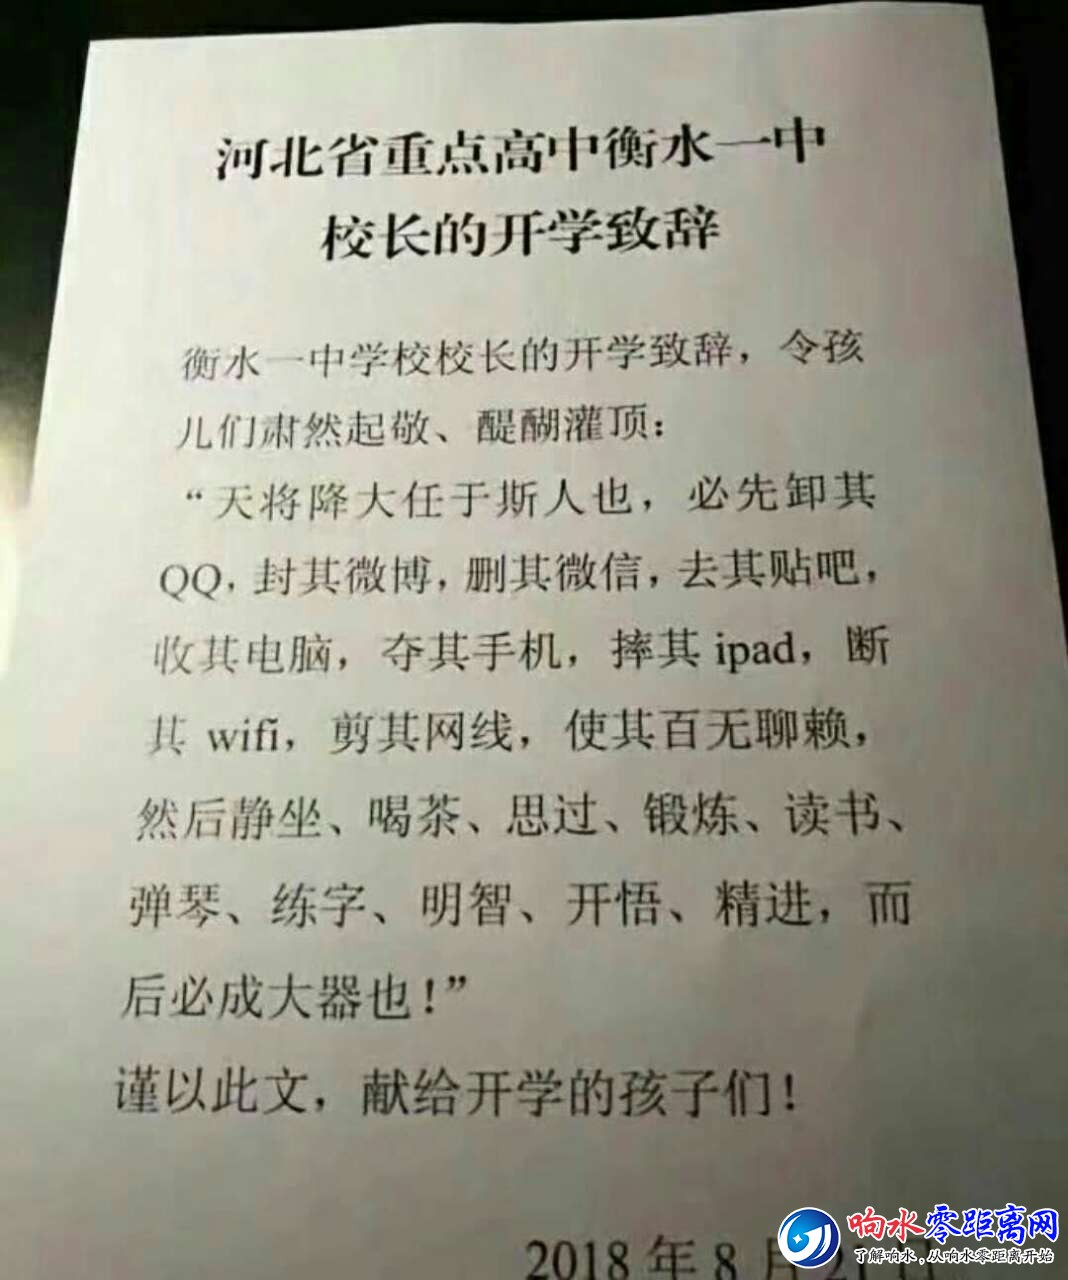 河北省重点高中衡水一中
校长的开学致辞
衡水一中学校校长的开学致辞，令孩
儿们肃然起敬、醍醐灌顶：
“天将降大任于斯人也，必先卸其
QQ，封其微博，删其微信，去其贴吧，
收其电脑，夺其手机，摔其 ipad，断
其 wifi，剪其网线，使其百无聊赖，
然后静坐、喝茶、思过、锻炼、读书、
弹琴、练字、明智、开悟、精进，而
后必成大器也！”
谨以此文，献给开学的孩子们！
2018 年 8 月
响水零距离网
了解响水，从响水零距离开始